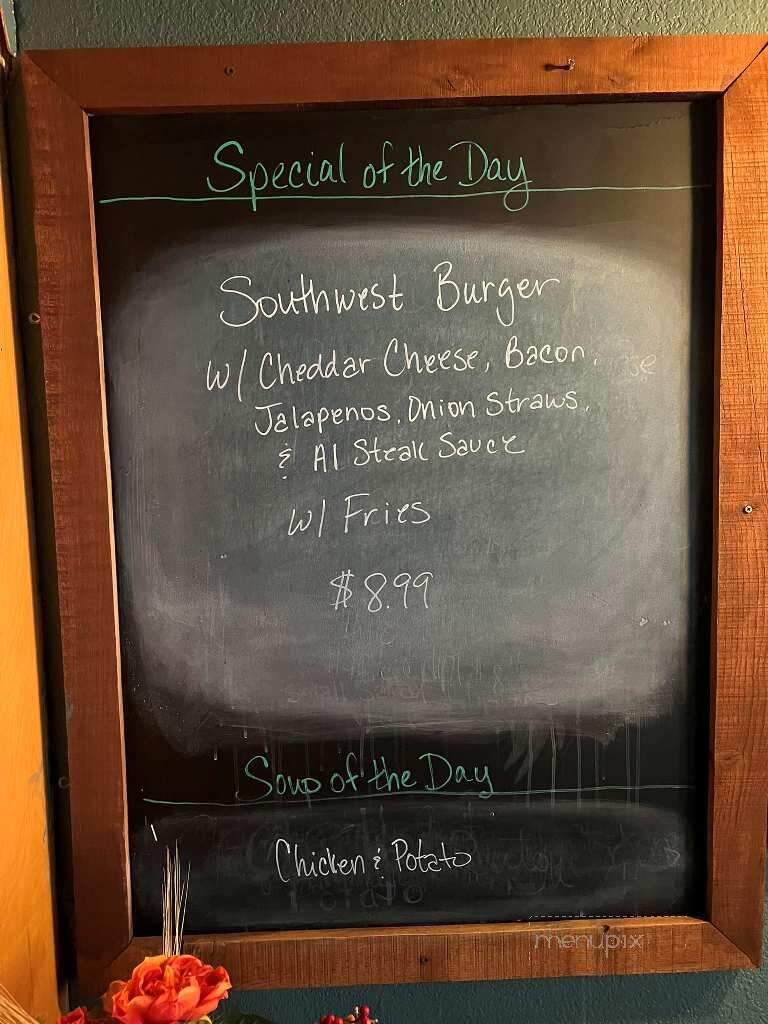 Special of the Day
Southwest Burger
w/ Cheddar Cheese, Bacon,
Jalapenos, Onion Straws,
& A1 Steak Sauce
w/ Fries
$8.99
Soup of the Day
Chicken & Potato
menupix